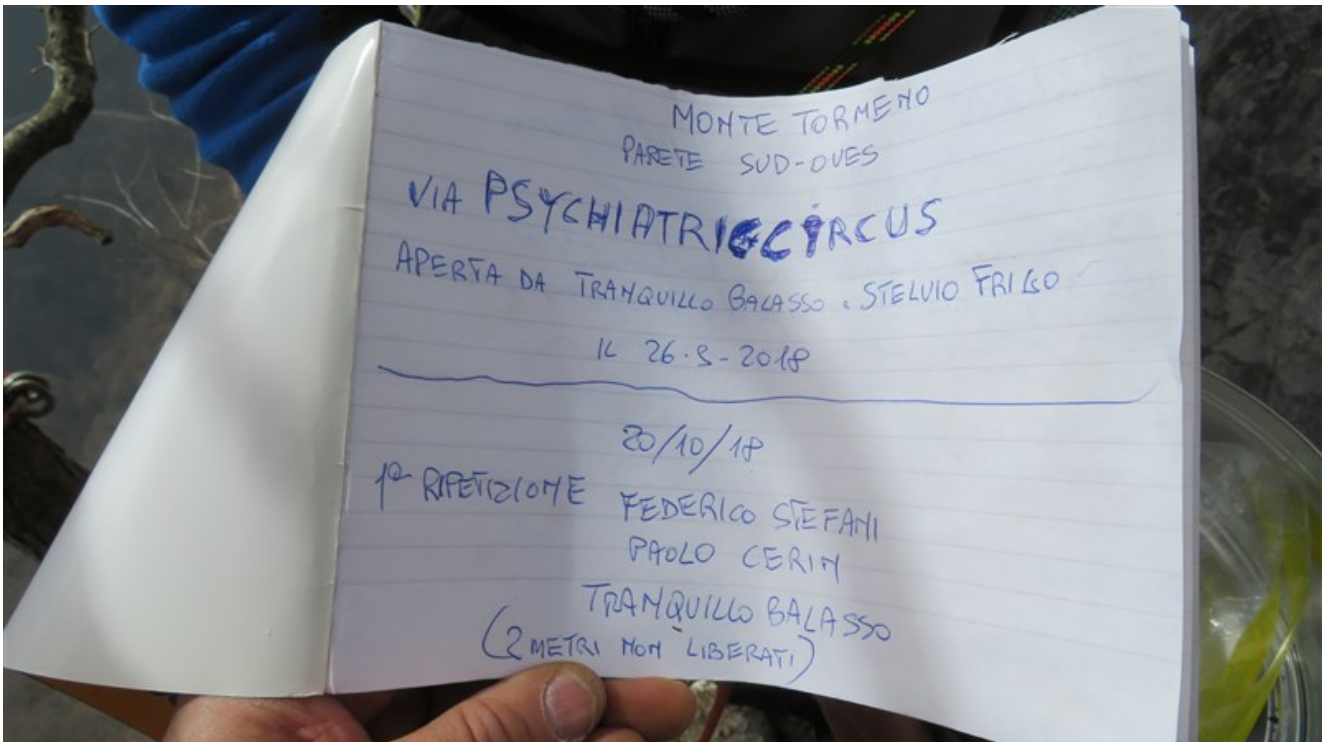 MONTE TORMENO
PARETE SUD-OVES
VIA PSYCHIATRIC CIRCUS
APERTA DA TRANQUILLO BALASSO. STELVIO FRIGO
IL 26.9-2018
20/10/18
1ª RIPETIZIONE FEDERICO STEFANI
PAOLO CERIN
TRANQUILLO BALASSO
(2 METRI NON LIBERATI)